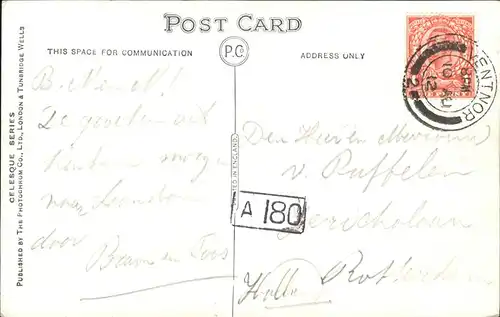 POST CARD
THIS SPACE FOR COMMUNICATION
P.C.
ADDRESS ONLY
CELESQUE SERIES
PUBLISHED BY THE PHOTOCHROM CO., LTD., LONDON & TUNBRIDGE WELLS
PRINTED IN ENGLAND
VENTNOR
12
De groeten uit
morgen
naar London
door
Bram en Toos
A 180
Den Heeren
v. Puffelen
Jericholaan
Rotterdam
Holland